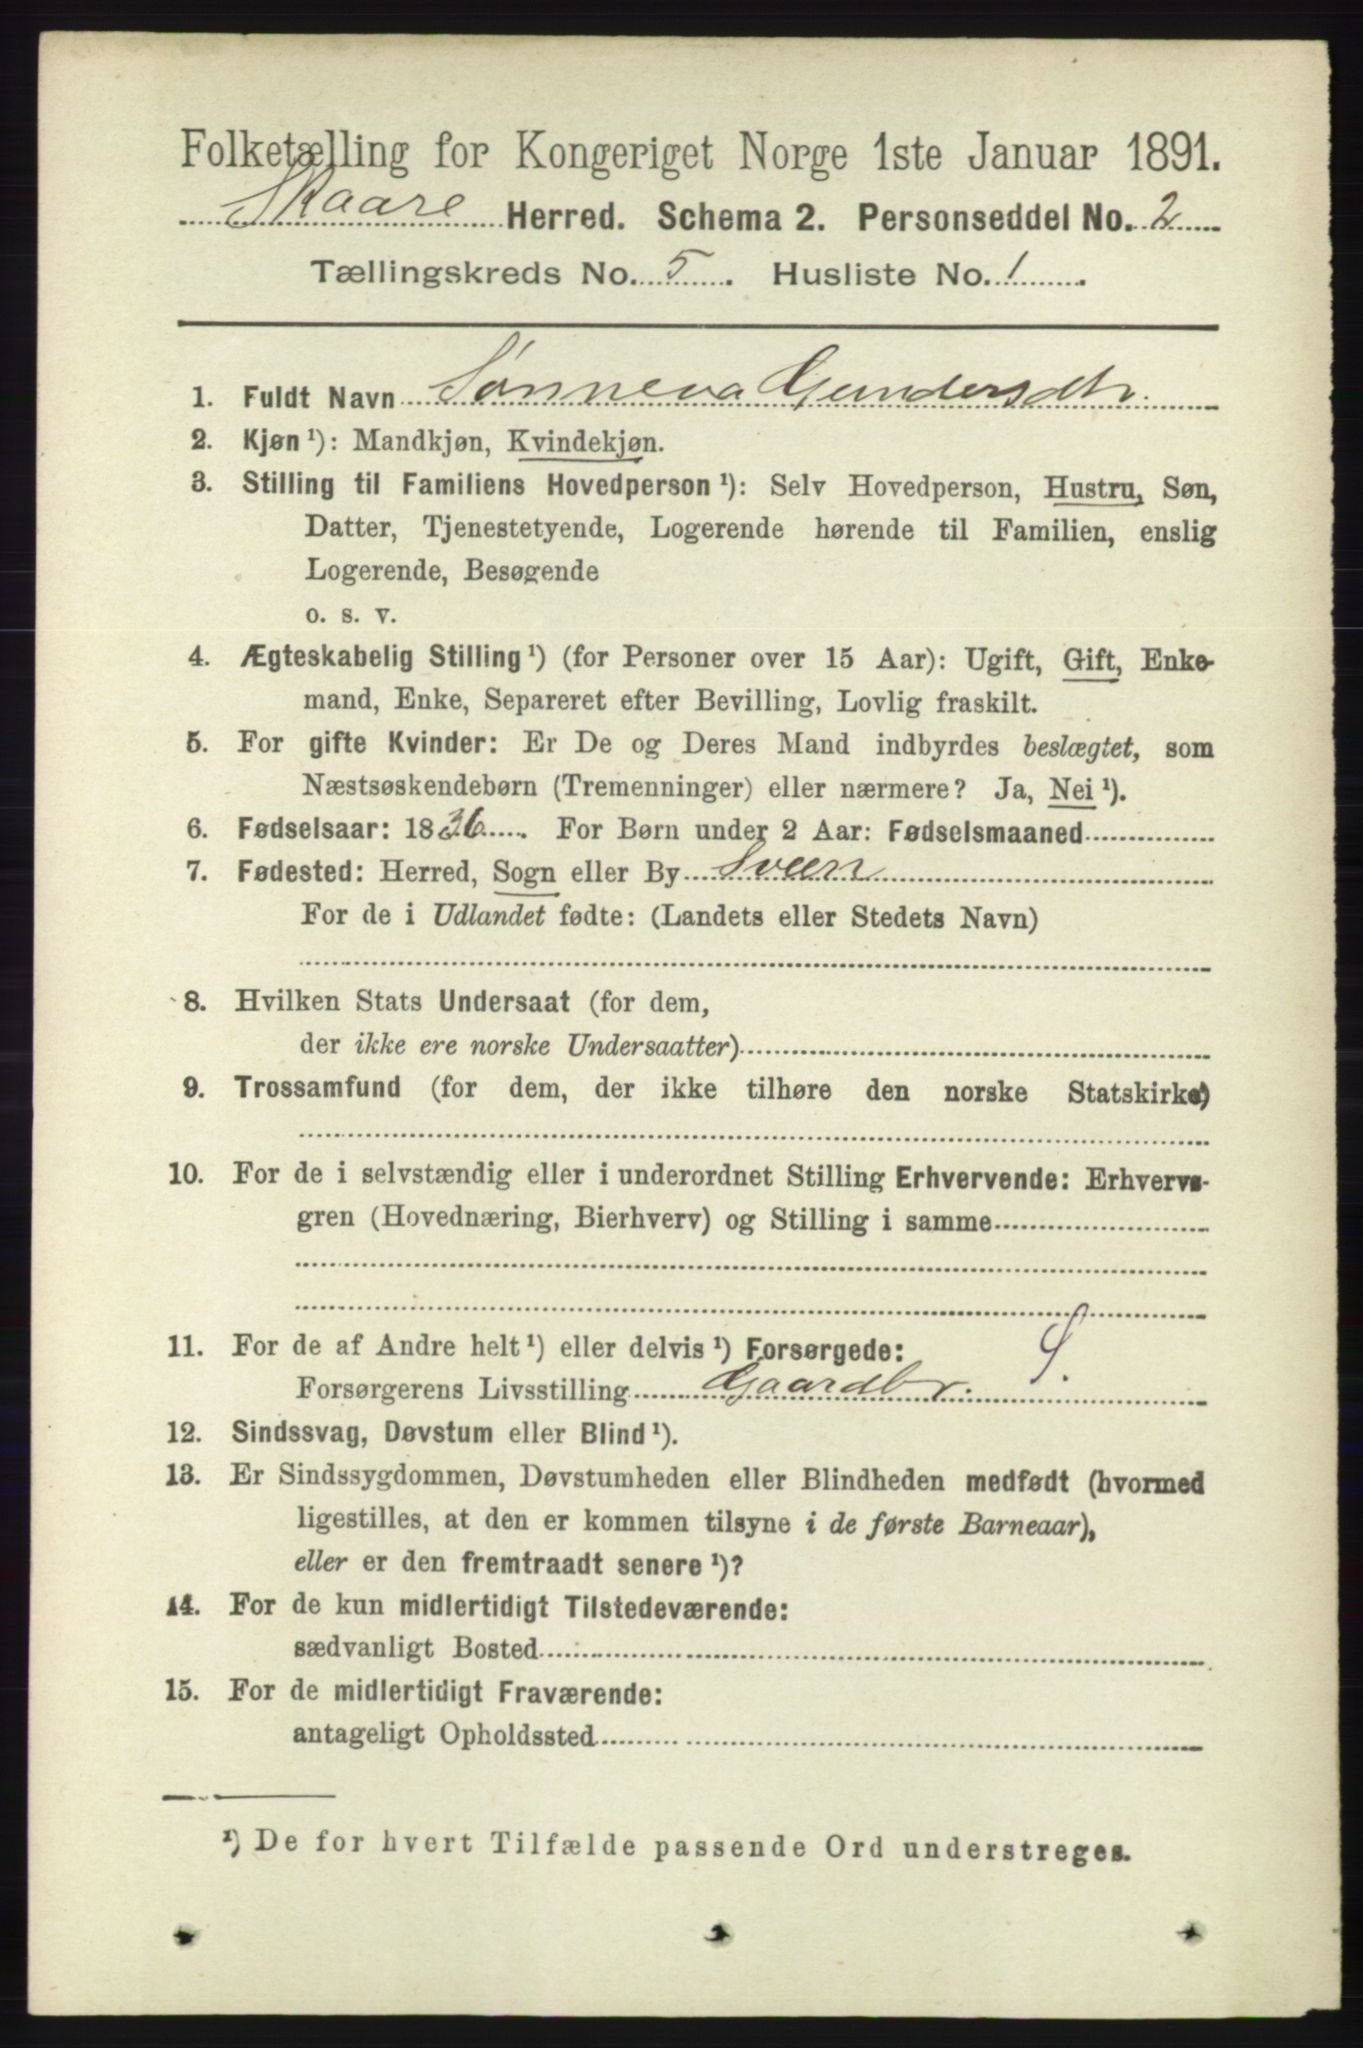 Folketælling for Kongeriget Norge 1ste Januar 1891.
Skaare Herred. Schema 2. Personseddel No. 2
Tællingskreds No. 5. Husliste No. 1.
1. Fuldt Navn Sønneva Gundersdtr.
2. Kjøn¹): Mandkjøn, Kvindekjøn.
3. Stilling til Familiens Hovedperson¹): Selv Hovedperson, Hustru, Søn,
Datter, Tjenestetyende, Logerende hørende til Familien, enslig
Logerende, Besøgende
o. s. v.
4. Ægteskabelig Stilling¹) (for Personer over 15 Aar): Ugift, Gift, Enke-
mand, Enke, Separeret efter Bevilling, Lovlig fraskilt.
5. For gifte Kvinder: Er De og Deres Mand indbyrdes beslægtet, som
Næstsøskendebørn (Tremenninger) eller nærmere? Ja, Nei¹).
6. Fødselsaar: 1836. For Børn under 2 Aar: Fødselsmaaned
7. Fødested: Herred, Sogn eller By Sveen
For de i Udlandet fødte: (Landets eller Stedets Navn)
8. Hvilken Stats Undersaat (for dem,
der ikke ere norske Undersaatter)
9. Trossamfund (for dem, der ikke tilhøre den norske Statskirke)
10. For de i selvstændig eller i underordnet Stilling Erhvervende: Erhvervs-
gren (Hovednæring, Bierhverv) og Stilling i samme
11. For de af Andre helt¹) eller delvis¹) Forsørgede:
Forsørgerens Livsstilling Gaardbr. S.
12. Sindssvag, Døvstum eller Blind¹).
13. Er Sindssygdommen, Døvstumheden eller Blindheden medfødt (hvormed
ligestilles, at den er kommen tilsyne i de første Barneaar),
eller er den fremtraadt senere¹)?
14. For de kun midlertidigt Tilstedeværende:
sædvanligt Bosted
15. For de midlertidigt Fraværende:
antageligt Opholdssted
¹) De for hvert Tilfælde passende Ord understreges.